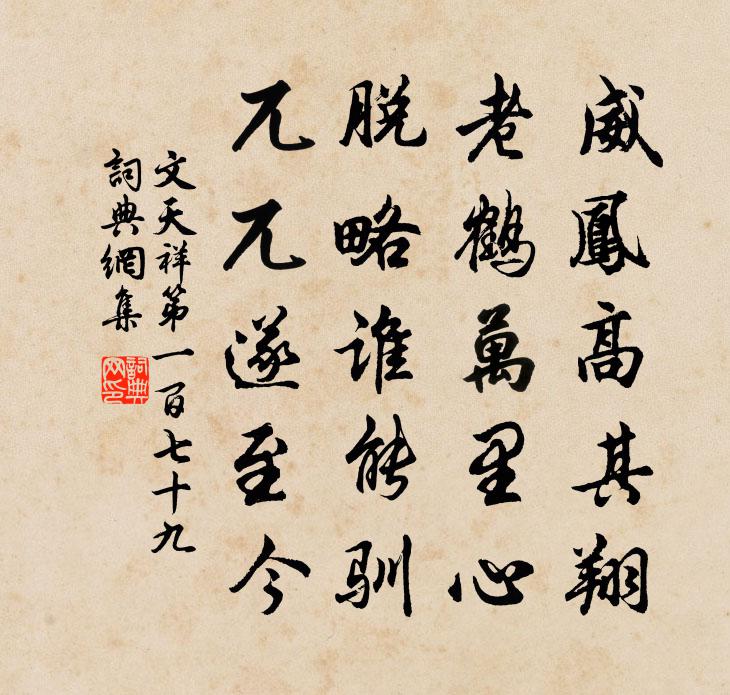 威鳳高其翔
老鶴萬里心
脫略誰能馴
兀兀遂至今
文天祥第一百七十九
詞典網集
詞典网印